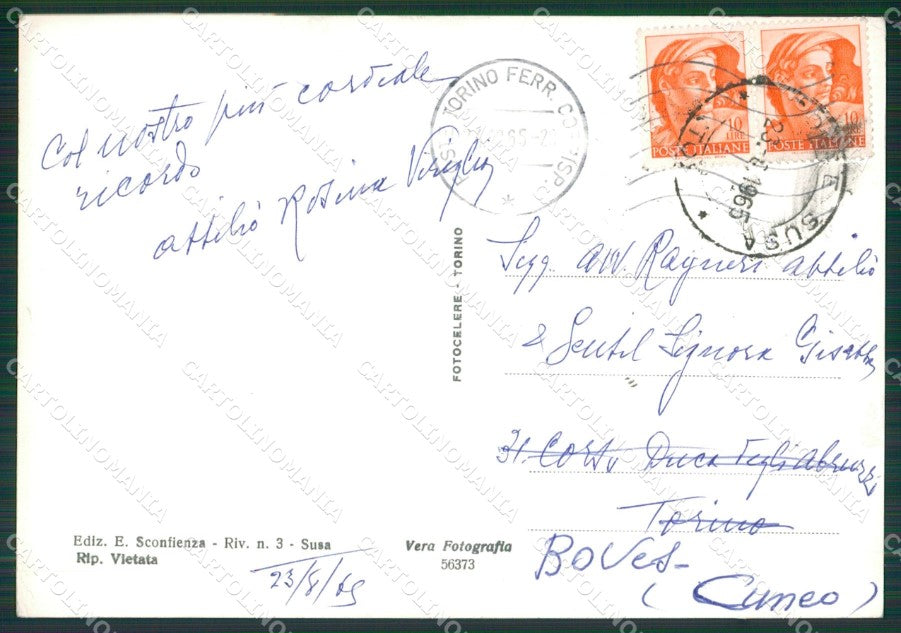 Col nostro più cordiale
ricordo
Attilio Rosina Viriglio
TORINO FERR. CORRISP.
10
LIRE
POSTE ITALIANE
10
POSTE ITALIANE
1965
SUSA
FOTOCELERE - TORINO
Avv. Ragneri Attilio
& Gentil Signora
31 Corso Duca degli Abruzzi
Torino
BOVES -
(Cuneo)
Ediz. E. Sconfienza - Riv. n. 3 - Susa
Rip. Vietata
23/8/65
Vera Fotografia
56373
CARTOLINOMANIA